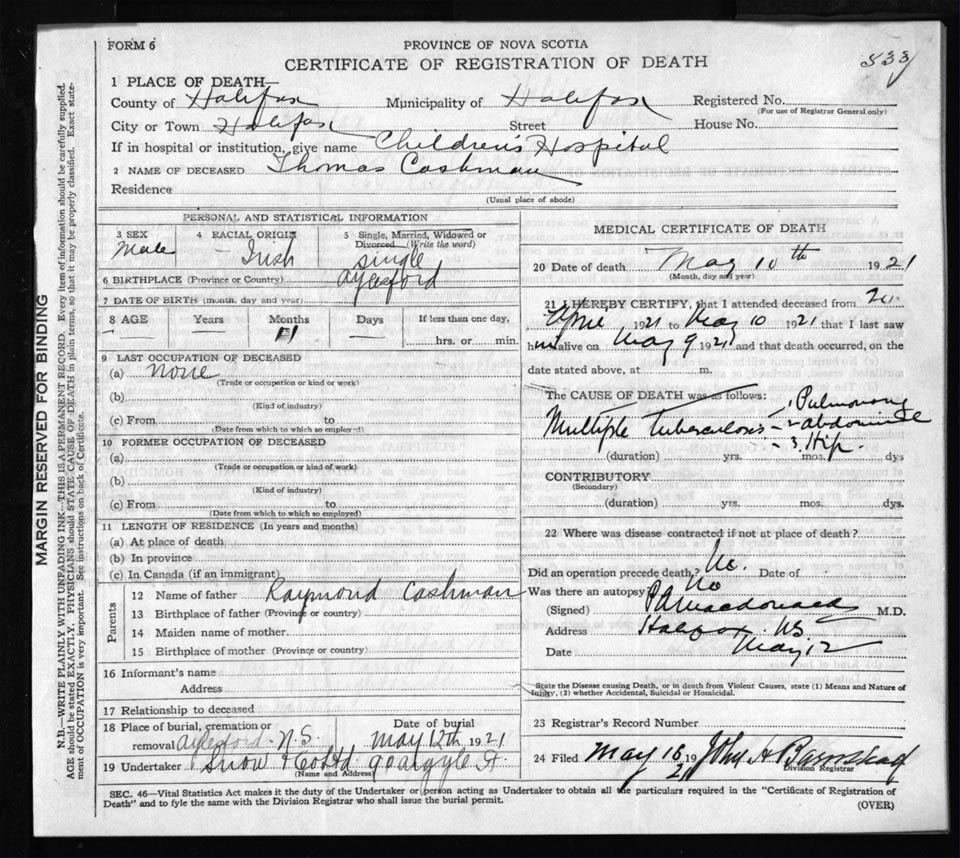 FORM 6
PROVINCE OF NOVA SCOTIA
CERTIFICATE OF REGISTRATION OF DEATH
533
1 PLACE OF DEATH—
County of Halifax Municipality of Halifax Registered No.
(For use of Registrar General only)
City or Town Halifax Street House No.
If in hospital or institution, give name Children's Hospital
2 NAME OF DECEASED Thomas Cashman
Residence
(Usual place of abode)
PERSONAL AND STATISTICAL INFORMATION
3 SEX 4 RACIAL ORIGIN 5 Single, Married, Widowed or
Divorced (Write the word)
Male — Irish Single
6 BIRTHPLACE (Province or Country) Aylesford
7 DATE OF BIRTH (month, day and year)
8 AGE Years Months Days If less than one day,
— — 11 — hrs. or min.
9 LAST OCCUPATION OF DECEASED
(a) none
(Trade or occupation or kind or work)
(b)
(Kind of industry)
(c) From to
(Date from which to which so employed)
10 FORMER OCCUPATION OF DECEASED
(a)
(Trade or occupation or kind of work)
(b)
(Kind of industry)
(c) From to
(Date from which to which so employed)
11 LENGTH OF RESIDENCE (In years and months)
(a) At place of death
(b) In province
(c) In Canada (if an immigrant)
Parents
12 Name of father Raymond Cashman
13 Birthplace of father (Province or country)
14 Maiden name of mother
15 Birthplace of mother (Province or country)
16 Informant's name
Address
17 Relationship to deceased
18 Place of burial, cremation or Date of burial
removal Aylesford N.S. May 12th 1921
19 Undertaker Snow & Co Ltd 90 Argyle St.
(Name and Address)
MEDICAL CERTIFICATE OF DEATH
20 Date of death May 10th 1921
(Month, day and year)
21 I HEREBY CERTIFY, that I attended deceased from 20
April 1921 to May 10 1921 that I last saw
him alive on May 9 1921 and that death occurred, on the
date stated above, at m.
The CAUSE OF DEATH was as follows:
Multiple Tuberculosis — 1 Pulmonary
— 2 abdominal
— 3. Hip.
(duration) yrs. mos. dys
CONTRIBUTORY
(Secondary)
(duration) yrs. mos. dys.
22 Where was disease contracted if not at place of death?
Did an operation precede death? No. Date of
Was there an autopsy No
(Signed) Macdonald M.D.
Address Halifax NS
Date May 12
State the Disease causing Death, or in death from Violent Causes, state (1) Means and Nature of
Injury, (2) whether Accidental, Suicidal or Homicidal.
23 Registrar's Record Number
24 Filed May 16 1921 John A Barnstead
Division Registrar
SEC. 46—Vital Statistics Act makes it the duty of the Undertaker or person acting as Undertaker to obtain all the particulars required in the "Certificate of Registration of
Death" and to fyle the same with the Division Registrar who shall issue the burial permit.
(OVER)
MARGIN RESERVED FOR BINDING
N.B.—WRITE PLAINLY WITH UNFADING INK—THIS IS A PERMANENT RECORD. Every item of information should be carefully supplied.
AGE should be stated EXACTLY. PHYSICIANS should STATE CAUSE OF DEATH in plain terms, so that it may be properly classified. Exact state-
ment of OCCUPATION is very important. See instructions on back of Certificate.